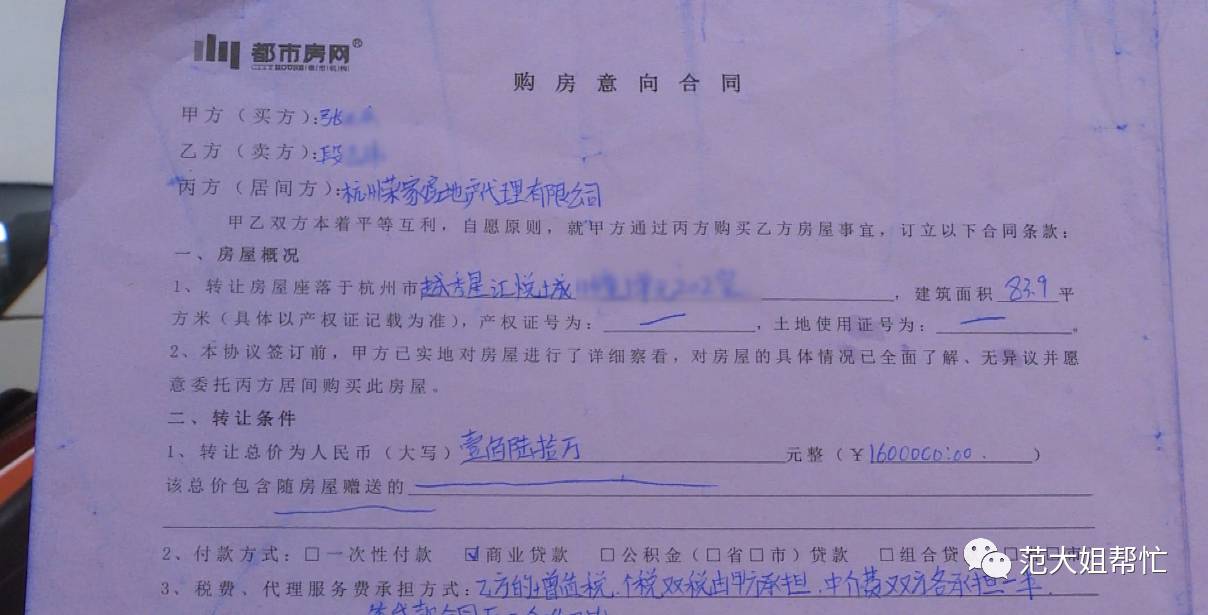 都市房网®
购房意向合同
甲方（买方）：张
乙方（卖方）：段
丙方（居间方）：杭州荣家房地产代理有限公司
甲乙双方本着平等互利，自愿原则，就甲方通过丙方购买乙方房屋事宜，订立以下合同条款：
一、房屋概况
1、转让房屋座落于杭州市越秀星汇悦城，建筑面积83.9平
方米（具体以产权证记载为准），产权证号为：，土地使用证号为：。
2、本协议签订前，甲方已实地对房屋进行了详细察看，对房屋的具体情况已全面了解、无异议并愿
意委托丙方居间购买此房屋。
二、转让条件
1、转让总价为人民币（大写）壹佰陆拾万元整（￥1600000:00.）
该总价包含随房屋赠送的
2、付款方式：□一次性付款 ☑商业贷款 □公积金（□省□市）贷款 □组合贷
3、税费、代理服务费承担方式：乙方的增值税、个税双税由甲方承担，中介费双方各承担一半，
范大姐帮忙